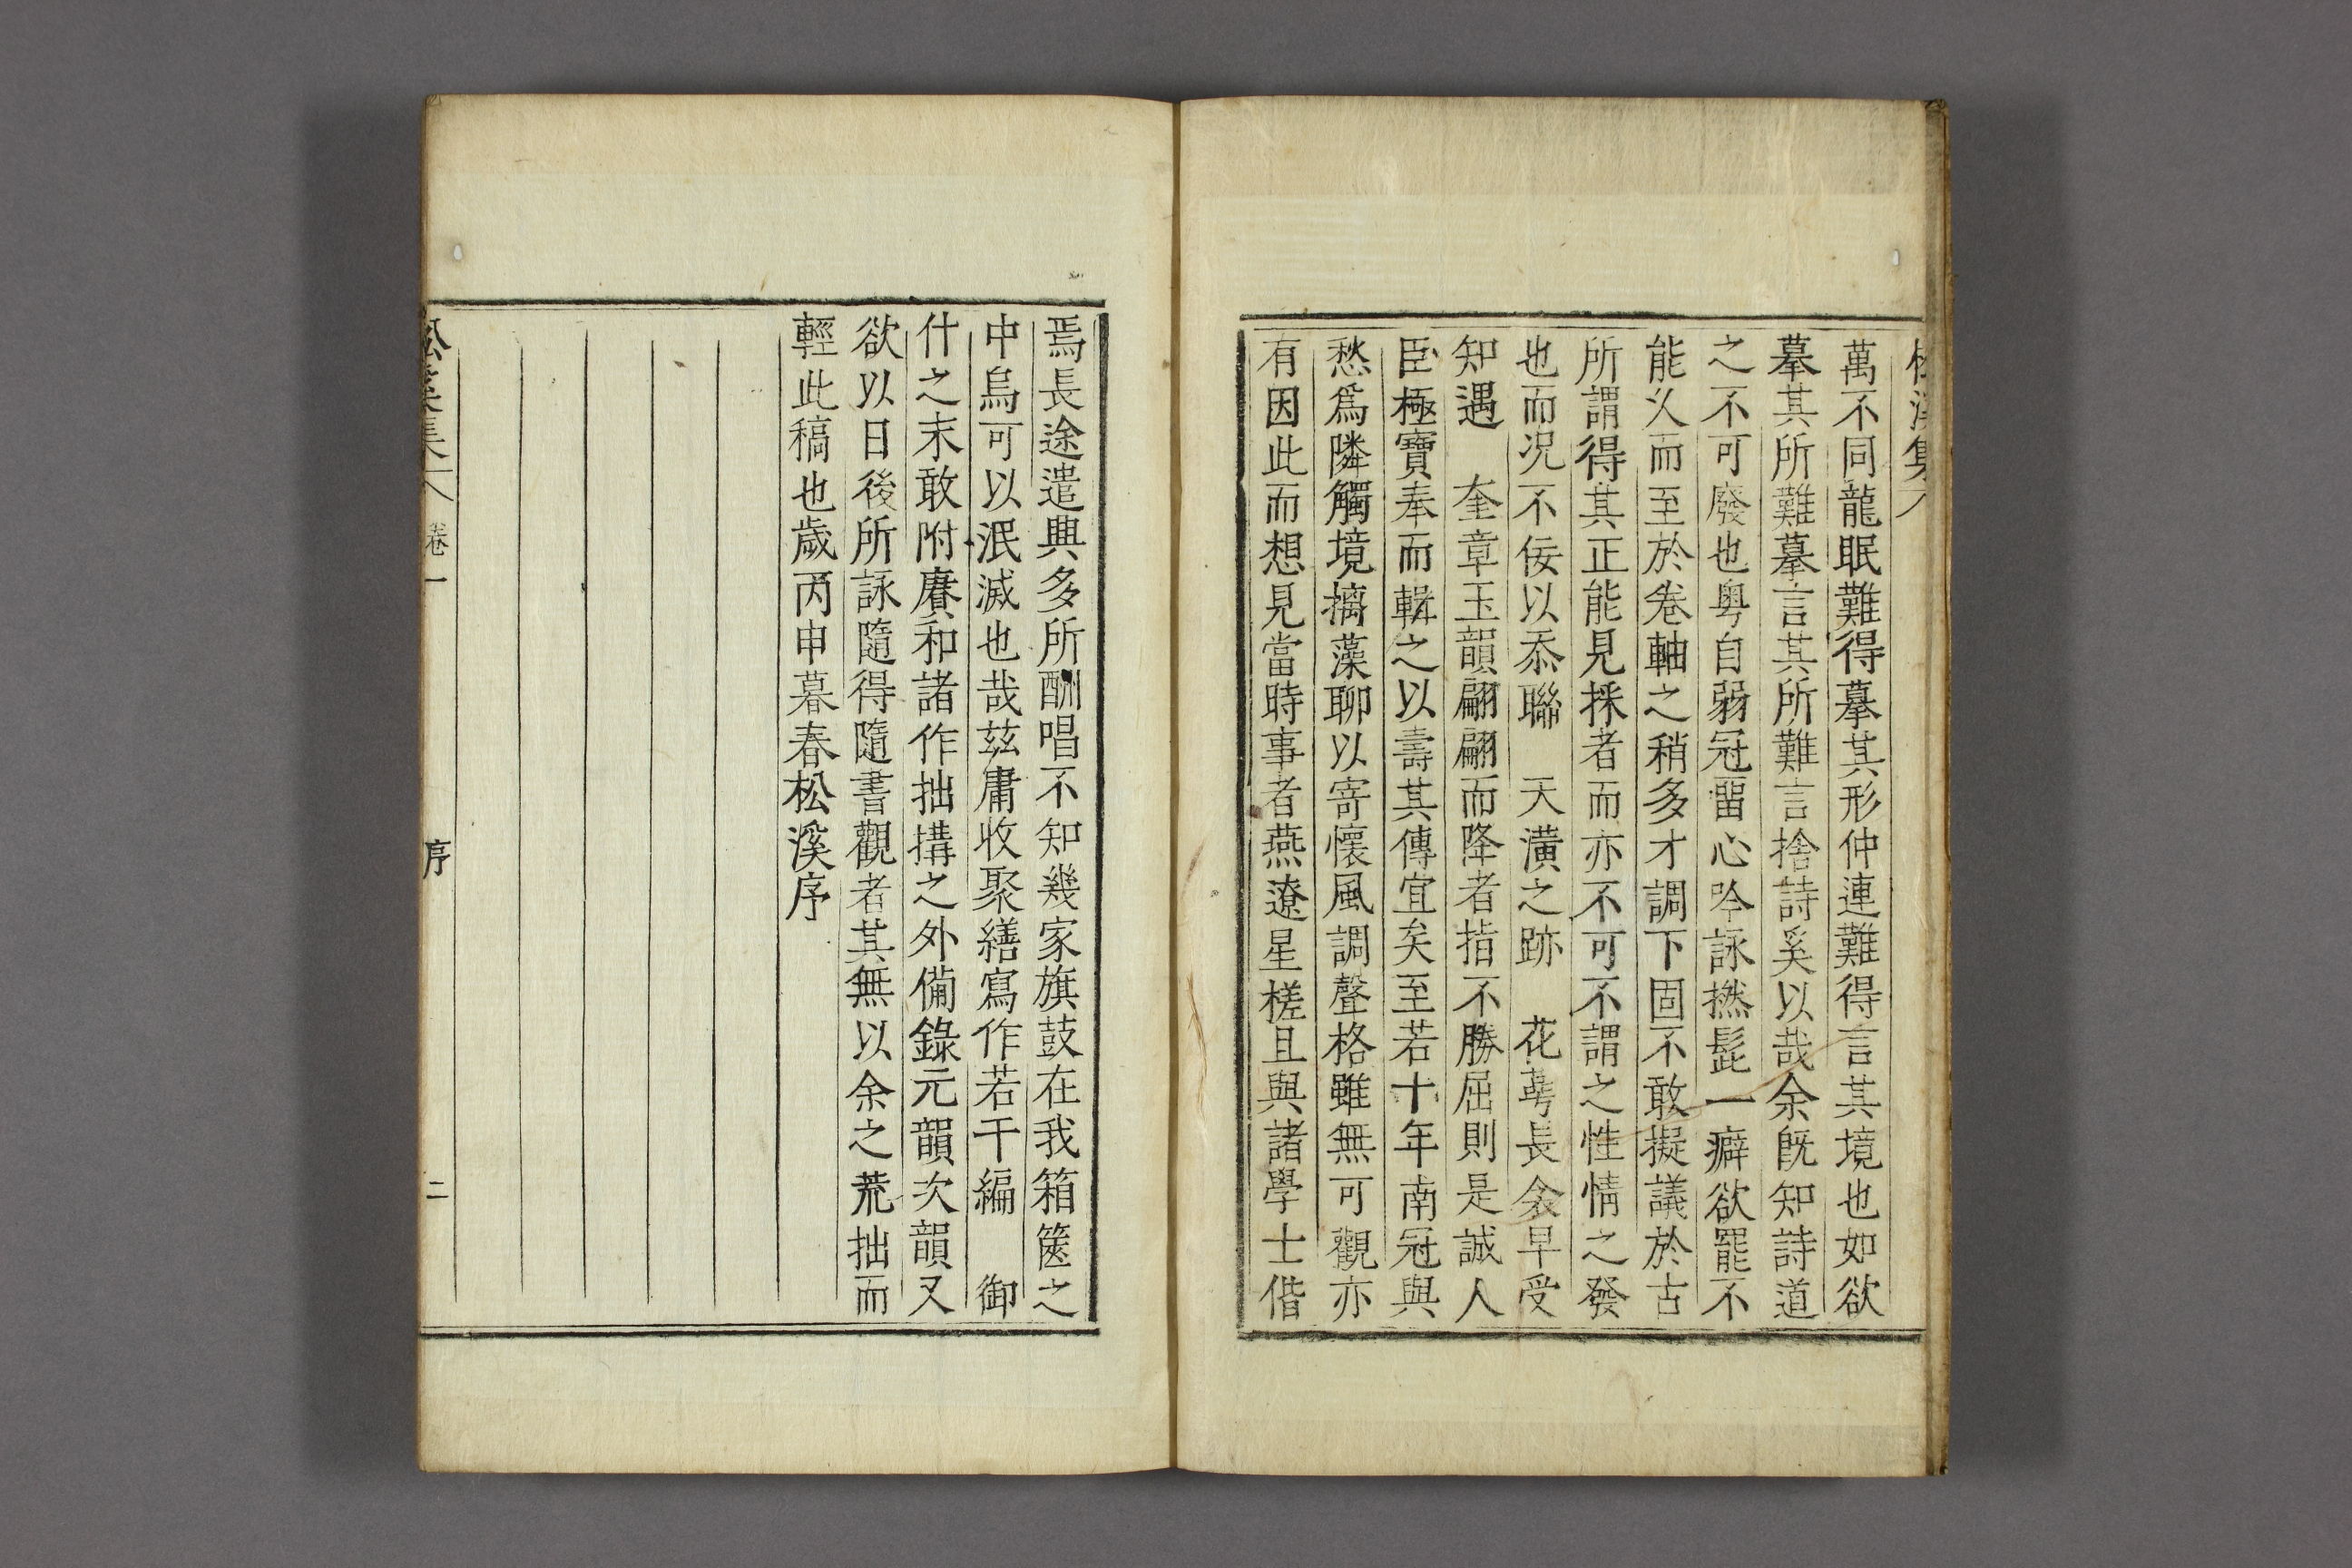 松溪集
萬不同龍眠難得摹其形仲連難得言其境也如欲
摹其所難摹言其所難言捨詩奚以哉余旣知詩道
之不可廢也粤自弱冠畱心吟詠撚髭一癖欲罷不
能久而至於卷軸之稍多才調下固不敢擬議於古
所謂得其正能見採者而亦不可不謂之性情之發
也而况不佞以忝聯 天潢之跡 花萼長衾早受
知遇 奎章玉韻翩翩而降者指不勝屈則是誠人
臣極寶奉而輯之以壽其傳宜矣至若十年南冠與
愁爲隣觸境摛藻聊以寄懷風調聲格雖無可觀亦
有因此而想見當時事者燕遼星槎且與諸學士偕
焉長途遣興多所酬唱不知幾家旗鼓在我箱篋之
中烏可以泯滅也哉玆庸收聚繕寫作若干編 御
什之末敢附賡和諸作拙搆之外備錄元韻次韻又
欲以日後所詠隨得隨書觀者其無以余之荒拙而
輕此稿也歲丙申暮春松溪序
松溪集 卷一 序 二